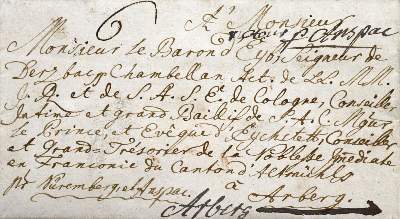 A Monsieur
Monsieur le Baron d'Eyb, Seigneur de
Chambellan Act. de LL. MM.
J. et de S. A. E. de Cologne, Conseiller
Intime et grand Baillif de S. A. C. Mgr
le Prince, et Evêque d'Eychstett, Conseiller
et Grand Trésorier de la Noblesse Imediate
en Franconie du Canton d'Altmühls
pr Nuremberg et Anspac. à Arberg.
Arberg